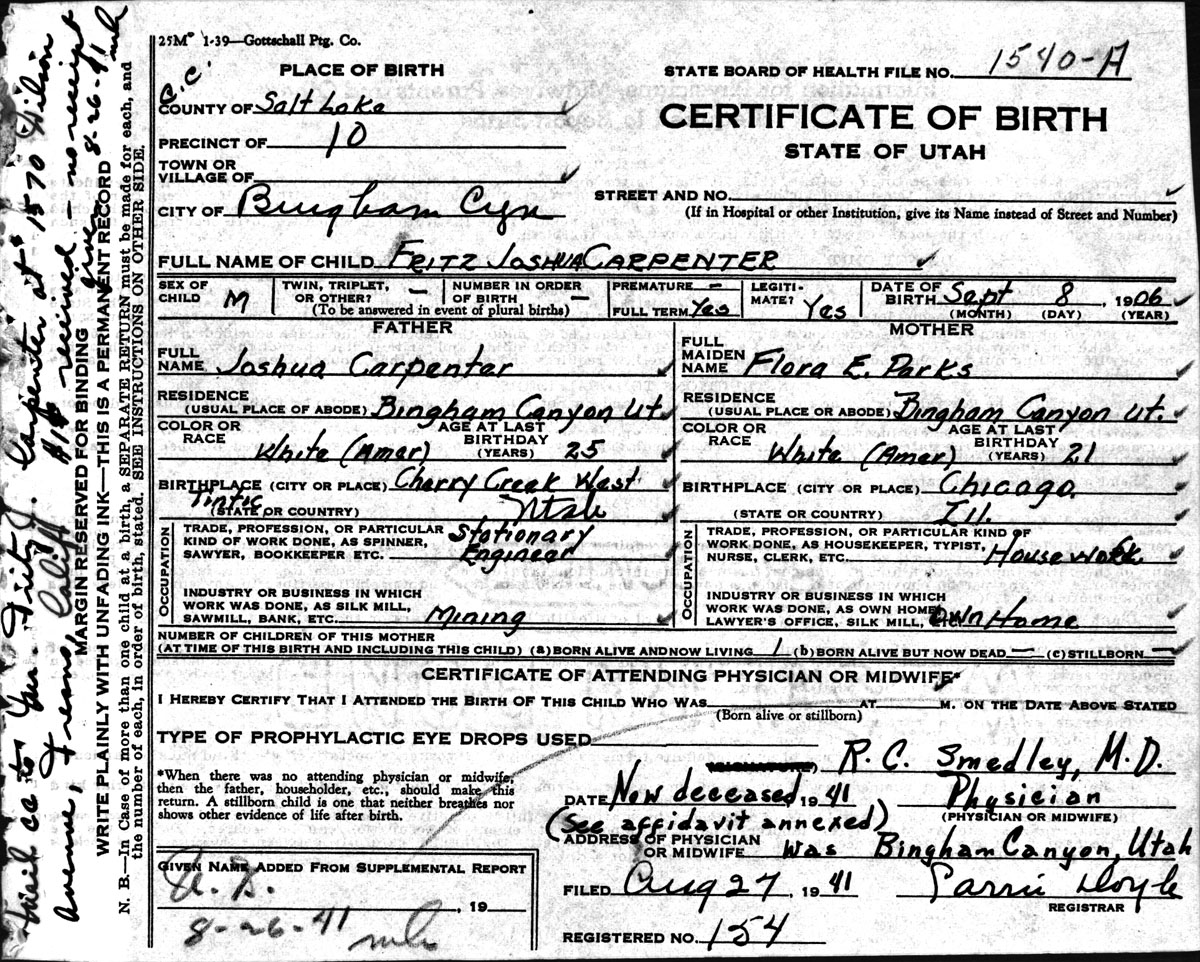 25M 1-39—Gottschall Ptg. Co.
PLACE OF BIRTH
STATE BOARD OF HEALTH FILE NO. 1540-A
COUNTY OF Salt Lake
CERTIFICATE OF BIRTH
PRECINCT OF 10
STATE OF UTAH
TOWN OR
VILLAGE OF
STREET AND NO.
CITY OF Bingham Cyn
(If in Hospital or other Institution, give its Name instead of Street and Number)
FULL NAME OF CHILD FRITZ JOSHUA CARPENTER
SEX OF CHILD M TWIN, TRIPLET, OR OTHER? — NUMBER IN ORDER OF BIRTH — PREMATURE — LEGITI-MATE? Yes DATE OF BIRTH Sept 8, 1906
(To be answered in event of plural births) FULL TERM Yes (MONTH) (DAY) (YEAR)
FATHER
FULL NAME Joshua Carpenter
RESIDENCE
(USUAL PLACE OF ABODE) Bingham Canyon Ut.
COLOR OR RACE White (Amer) AGE AT LAST BIRTHDAY (YEARS) 25
BIRTHPLACE (CITY OR PLACE) Cherry Creek West
Tintic (STATE OR COUNTRY) Utah
OCCUPATION
TRADE, PROFESSION, OR PARTICULAR
KIND OF WORK DONE, AS SPINNER,
SAWYER, BOOKKEEPER ETC. Stationary Engineer
INDUSTRY OR BUSINESS IN WHICH
WORK WAS DONE, AS SILK MILL,
SAWMILL, BANK, ETC. Mining
MOTHER
FULL MAIDEN NAME Flora E. Parks
RESIDENCE
(USUAL PLACE OR ABODE) Bingham Canyon Ut.
COLOR OR RACE White (Amer) AGE AT LAST BIRTHDAY (YEARS) 21
BIRTHPLACE (CITY OR PLACE) Chicago
(STATE OR COUNTRY) Ill.
OCCUPATION
TRADE, PROFESSION, OR PARTICULAR KIND OF
WORK DONE, AS HOUSEKEEPER, TYPIST,
NURSE, CLERK, ETC. House Work
INDUSTRY OR BUSINESS IN WHICH
WORK WAS DONE, AS OWN HOME,
LAWYER'S OFFICE, SILK MILL, Own Home
NUMBER OF CHILDREN OF THIS MOTHER
(AT TIME OF THIS BIRTH AND INCLUDING THIS CHILD) (a) BORN ALIVE AND NOW LIVING 1 (b) BORN ALIVE BUT NOW DEAD — (c) STILLBORN —
CERTIFICATE OF ATTENDING PHYSICIAN OR MIDWIFE*
I HEREBY CERTIFY THAT I ATTENDED THE BIRTH OF THIS CHILD WHO WAS AT M. ON THE DATE ABOVE STATED
(Born alive or stillborn)
TYPE OF PROPHYLACTIC EYE DROPS USED
*When there was no attending physician or midwife,
then the father, householder, etc., should make this
return. A stillborn child is one that neither breathes nor
shows other evidence of life after birth.
R. C. Smedley, M.D.
DATE Now deceased 1941 Physician
(PHYSICIAN OR MIDWIFE)
(See affidavit annexed)
ADDRESS OF PHYSICIAN
OR MIDWIFE was Bingham Canyon, Utah
GIVEN NAME ADDED FROM SUPPLEMENTAL REPORT
, 19
8-26-41
FILED Aug 27, 1941
REGISTRAR
REGISTERED NO. 154
MARGIN RESERVED FOR BINDING
WRITE PLAINLY WITH UNFADING INK—THIS IS A PERMANENT RECORD
N. B.—In Case of more than one child at a birth, a SEPARATE RETURN must be made for each, and
the number of each, in order of birth, stated. SEE INSTRUCTIONS ON OTHER SIDE.
Mail cc to Fritz J. Carpenter at 1570 Wilson
Avenue, Fresno, Calif. received — no receipt
given 8-26-41